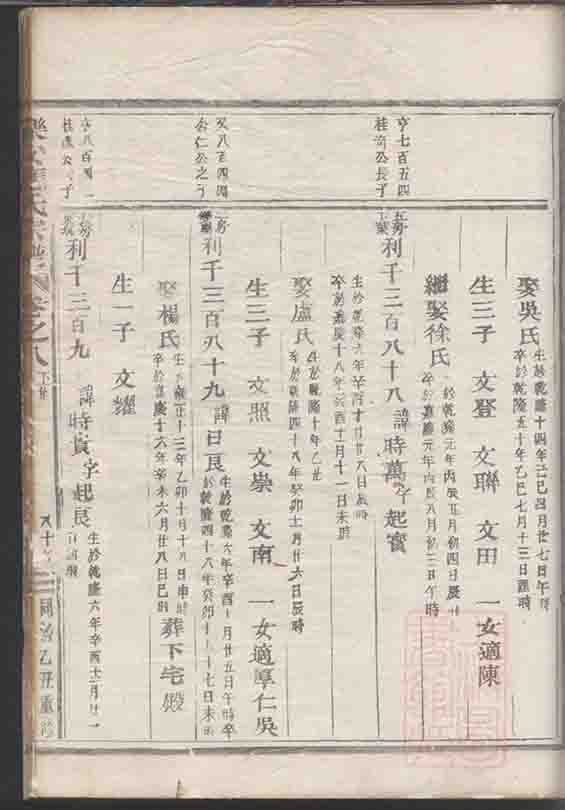 娶吳氏
生於乾隆十四年己巳四月廿七日午時
卒於乾隆五十年乙巳七月十三日酉時
生三子 文登 文聯 文田 一女適陳
繼娶徐氏
於乾隆元年丙辰五月初四日辰
卒於嘉慶元年丙辰八月初三日午時
亨七百五四
桂奇公長子
利千三百八十八 諱時萬 字起賓
生於乾隆六年辛酉十月廿八日辰時
卒於嘉慶十八年癸酉十月十一日未時
娶盧氏
生於乾隆十年乙丑
卒於乾隆四十八年癸卯十二月廿六日辰時
生三子 文照 文崇 文南 一女適厚仁吳
亨八百四四
利千三百八十九 諱日良
生於乾隆六年辛酉十月廿五日午時卒
於乾隆四十八年癸卯十一月十七日未時
娶楊氏
生雍正十三年乙卯十月十八日申時
卒於嘉慶十六年辛未六月廿八日巳時
葬下宅殿
生一子 文耀
亨八百四
利千三百九 諱時賓 字起良
生於乾隆六年辛酉十二月廿一
卷之八
同治乙丑重修